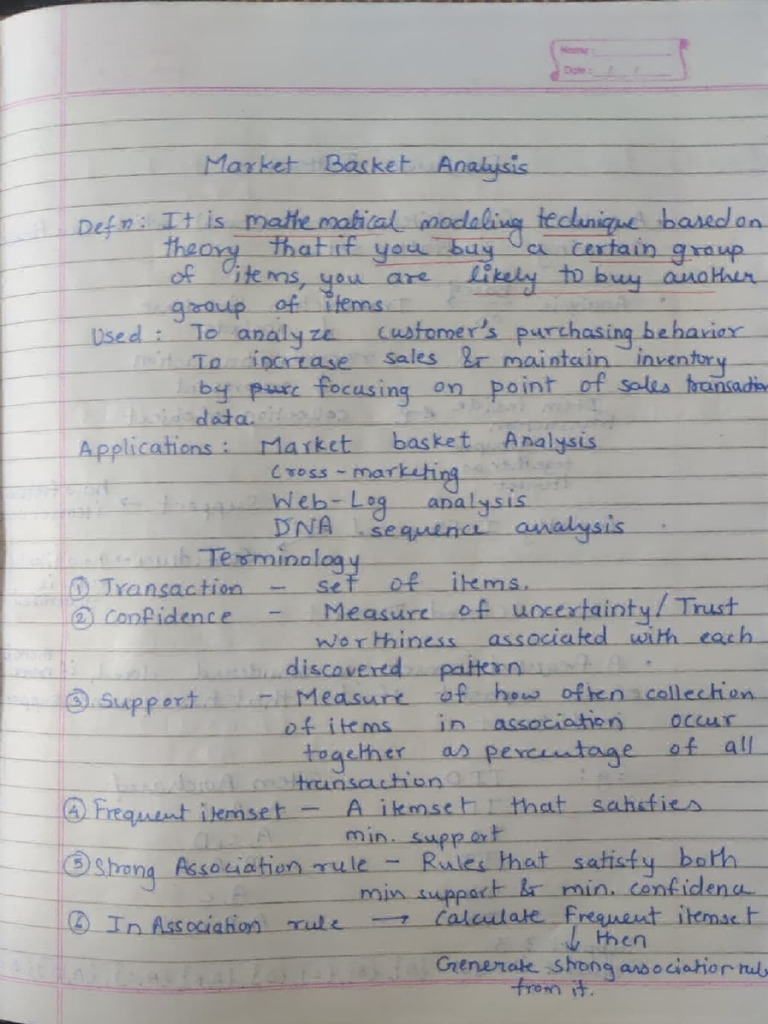 Name :
Date : / /
Market Basket Analysis
Defn: It is mathematical modeling technique based on
theory that if you buy a certain group
of items, you are likely to buy another
group of items
Used : To analyze customer's purchasing behavior
To increase sales & maintain inventory
by purc focusing on point of sales transaction
data.
Applications : Market basket Analysis
Cross-marketing
Web-Log analysis
DNA sequence analysis
Terminology
① Transaction - set of items.
② Confidence - Measure of uncertainty/ Trust
worthiness associated with each
discovered pattern
③ Support - Measure of how often collection
of items in association occur
together as percentage of all
transaction
④ Frequent itemset - A itemset that satisfies
min. support
⑤ Strong Association rule - Rules that satisfy both
min support & min. confidenc
⑥ In Association rule → Calculate Frequent itemset
↓ then
Generate strong association rul
from it.